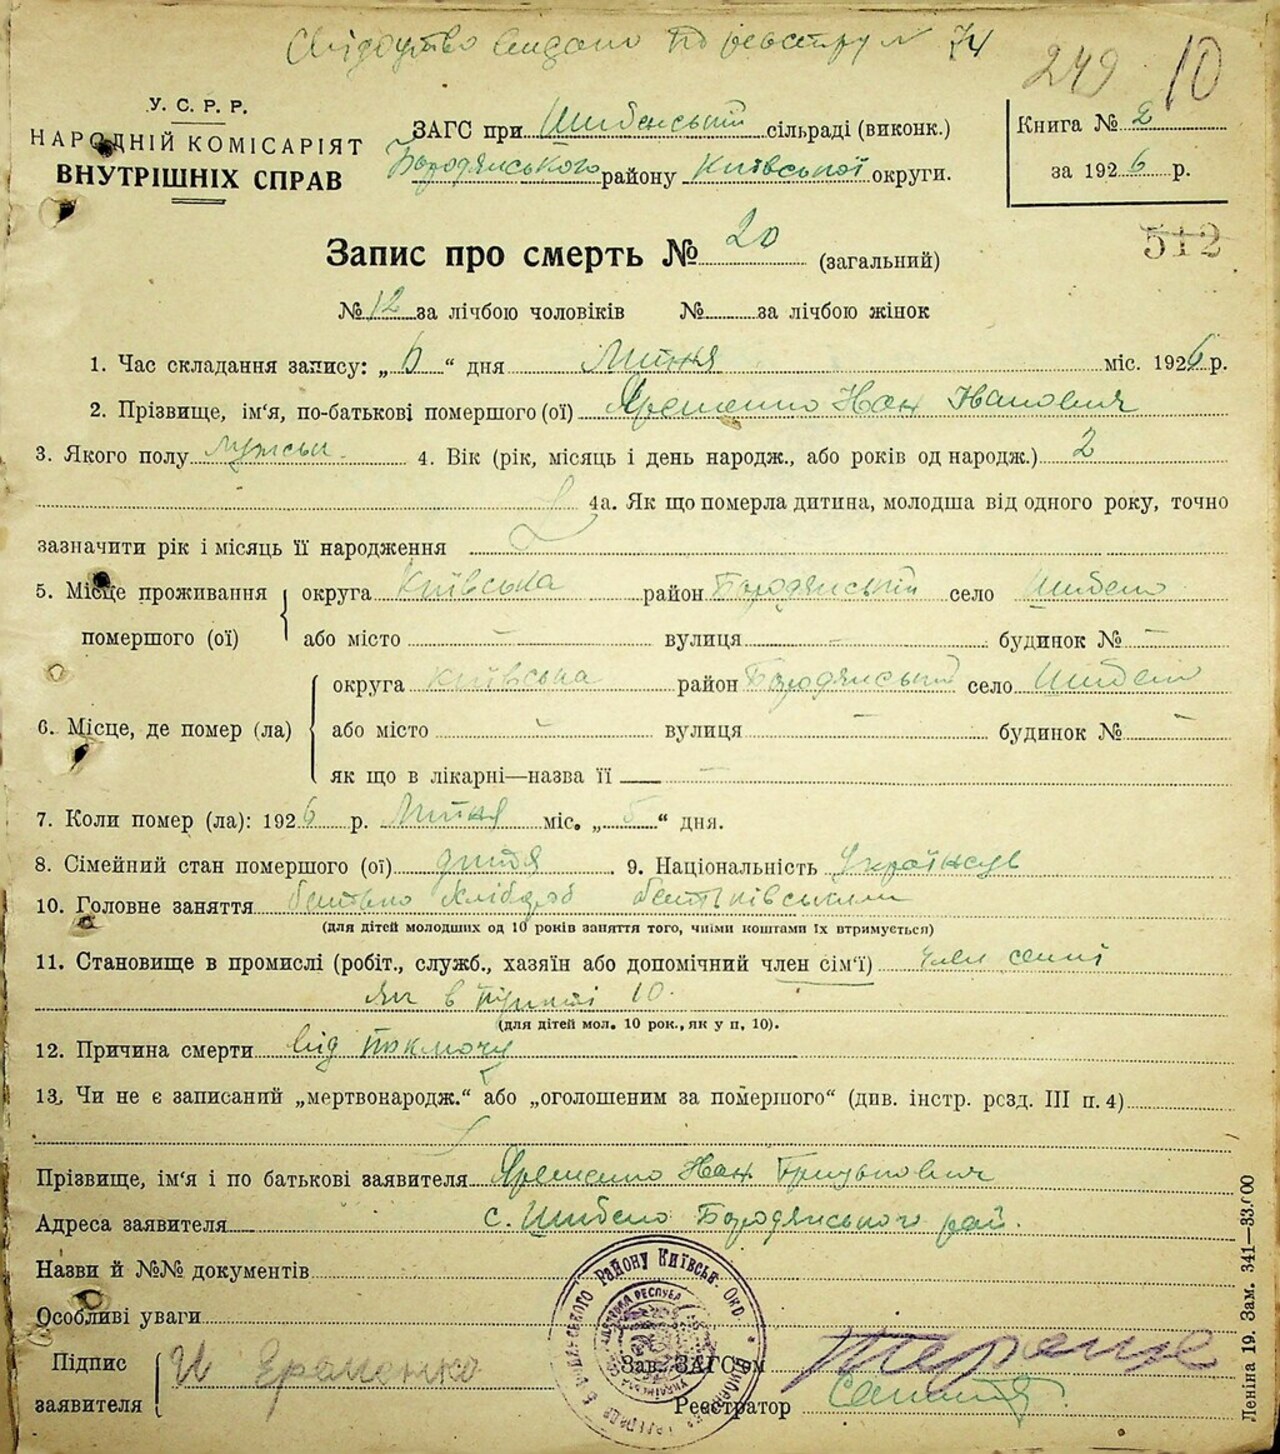 Свідоцтво видано по реєстру № 74
249 10
У. С. Р. Р.
НАРОДНІЙ КОМІСАРІЯТ
ВНУТРІШНІХ СПРАВ
ЗАГС при Шибенській сільраді (виконк.)
Бородянського району Київської округи.
Книга № 2
за 1926 р.
512
Запис про смерть № 20 (загальний)
№ 12 за лічбою чоловіків № за лічбою жінок
1. Час складання запису: „6“ дня Липня міс. 1926 р.
2. Прізвище, ім‘я, по-батькові помершого (ої) Яременко Іван Іванович
3. Якого полу мужськ. 4. Вік (рік, місяць і день народж., або років од народж.) 2
4а. Як що померла дитина, молодша від одного року, точно
зазначити рік і місяць її народження
5. Місце проживання помершого (ої) округа Київська район Бородянський село Шибено
або місто — вулиця — будинок № —
6. Місце, де помер (ла) округа Київська район Бородянський село Шибено
або місто — вулиця — будинок № —
як що в лікарні—назва її —
7. Коли помер (ла): 1926 р. Липня міс. „5“ дня.
8. Сімейний стан помершого (ої) дитя 9. Національність Українець
10. Головне заняття батько хлібороб
(для дітей молодших од 10 років заняття того, чиїми коштами їх втримується)
11. Становище в промислі (робіт., служб., хазяїн або допомічний член сім‘ї) член семї
як в пункті 10.
(для дітей мол. 10 рок., як у п. 10).
12. Причина смерти від
13. Чи не є записаний „мертвонародж.“ або „оголошеним за помершого“ (див. інстр. розд. III п. 4)
Прізвище, ім‘я і по батькові заявителя Яременко Іван Григорович
Адреса заявителя с. Шибено Бородянського рай.
Назви й №№ документів
Особливі уваги
Підпис заявителя И Яраменко
Зав. ЗАГС‘ом
Реєстратор
Району Київськ. Окр.
Леніна 19. Зам. 341—33.000